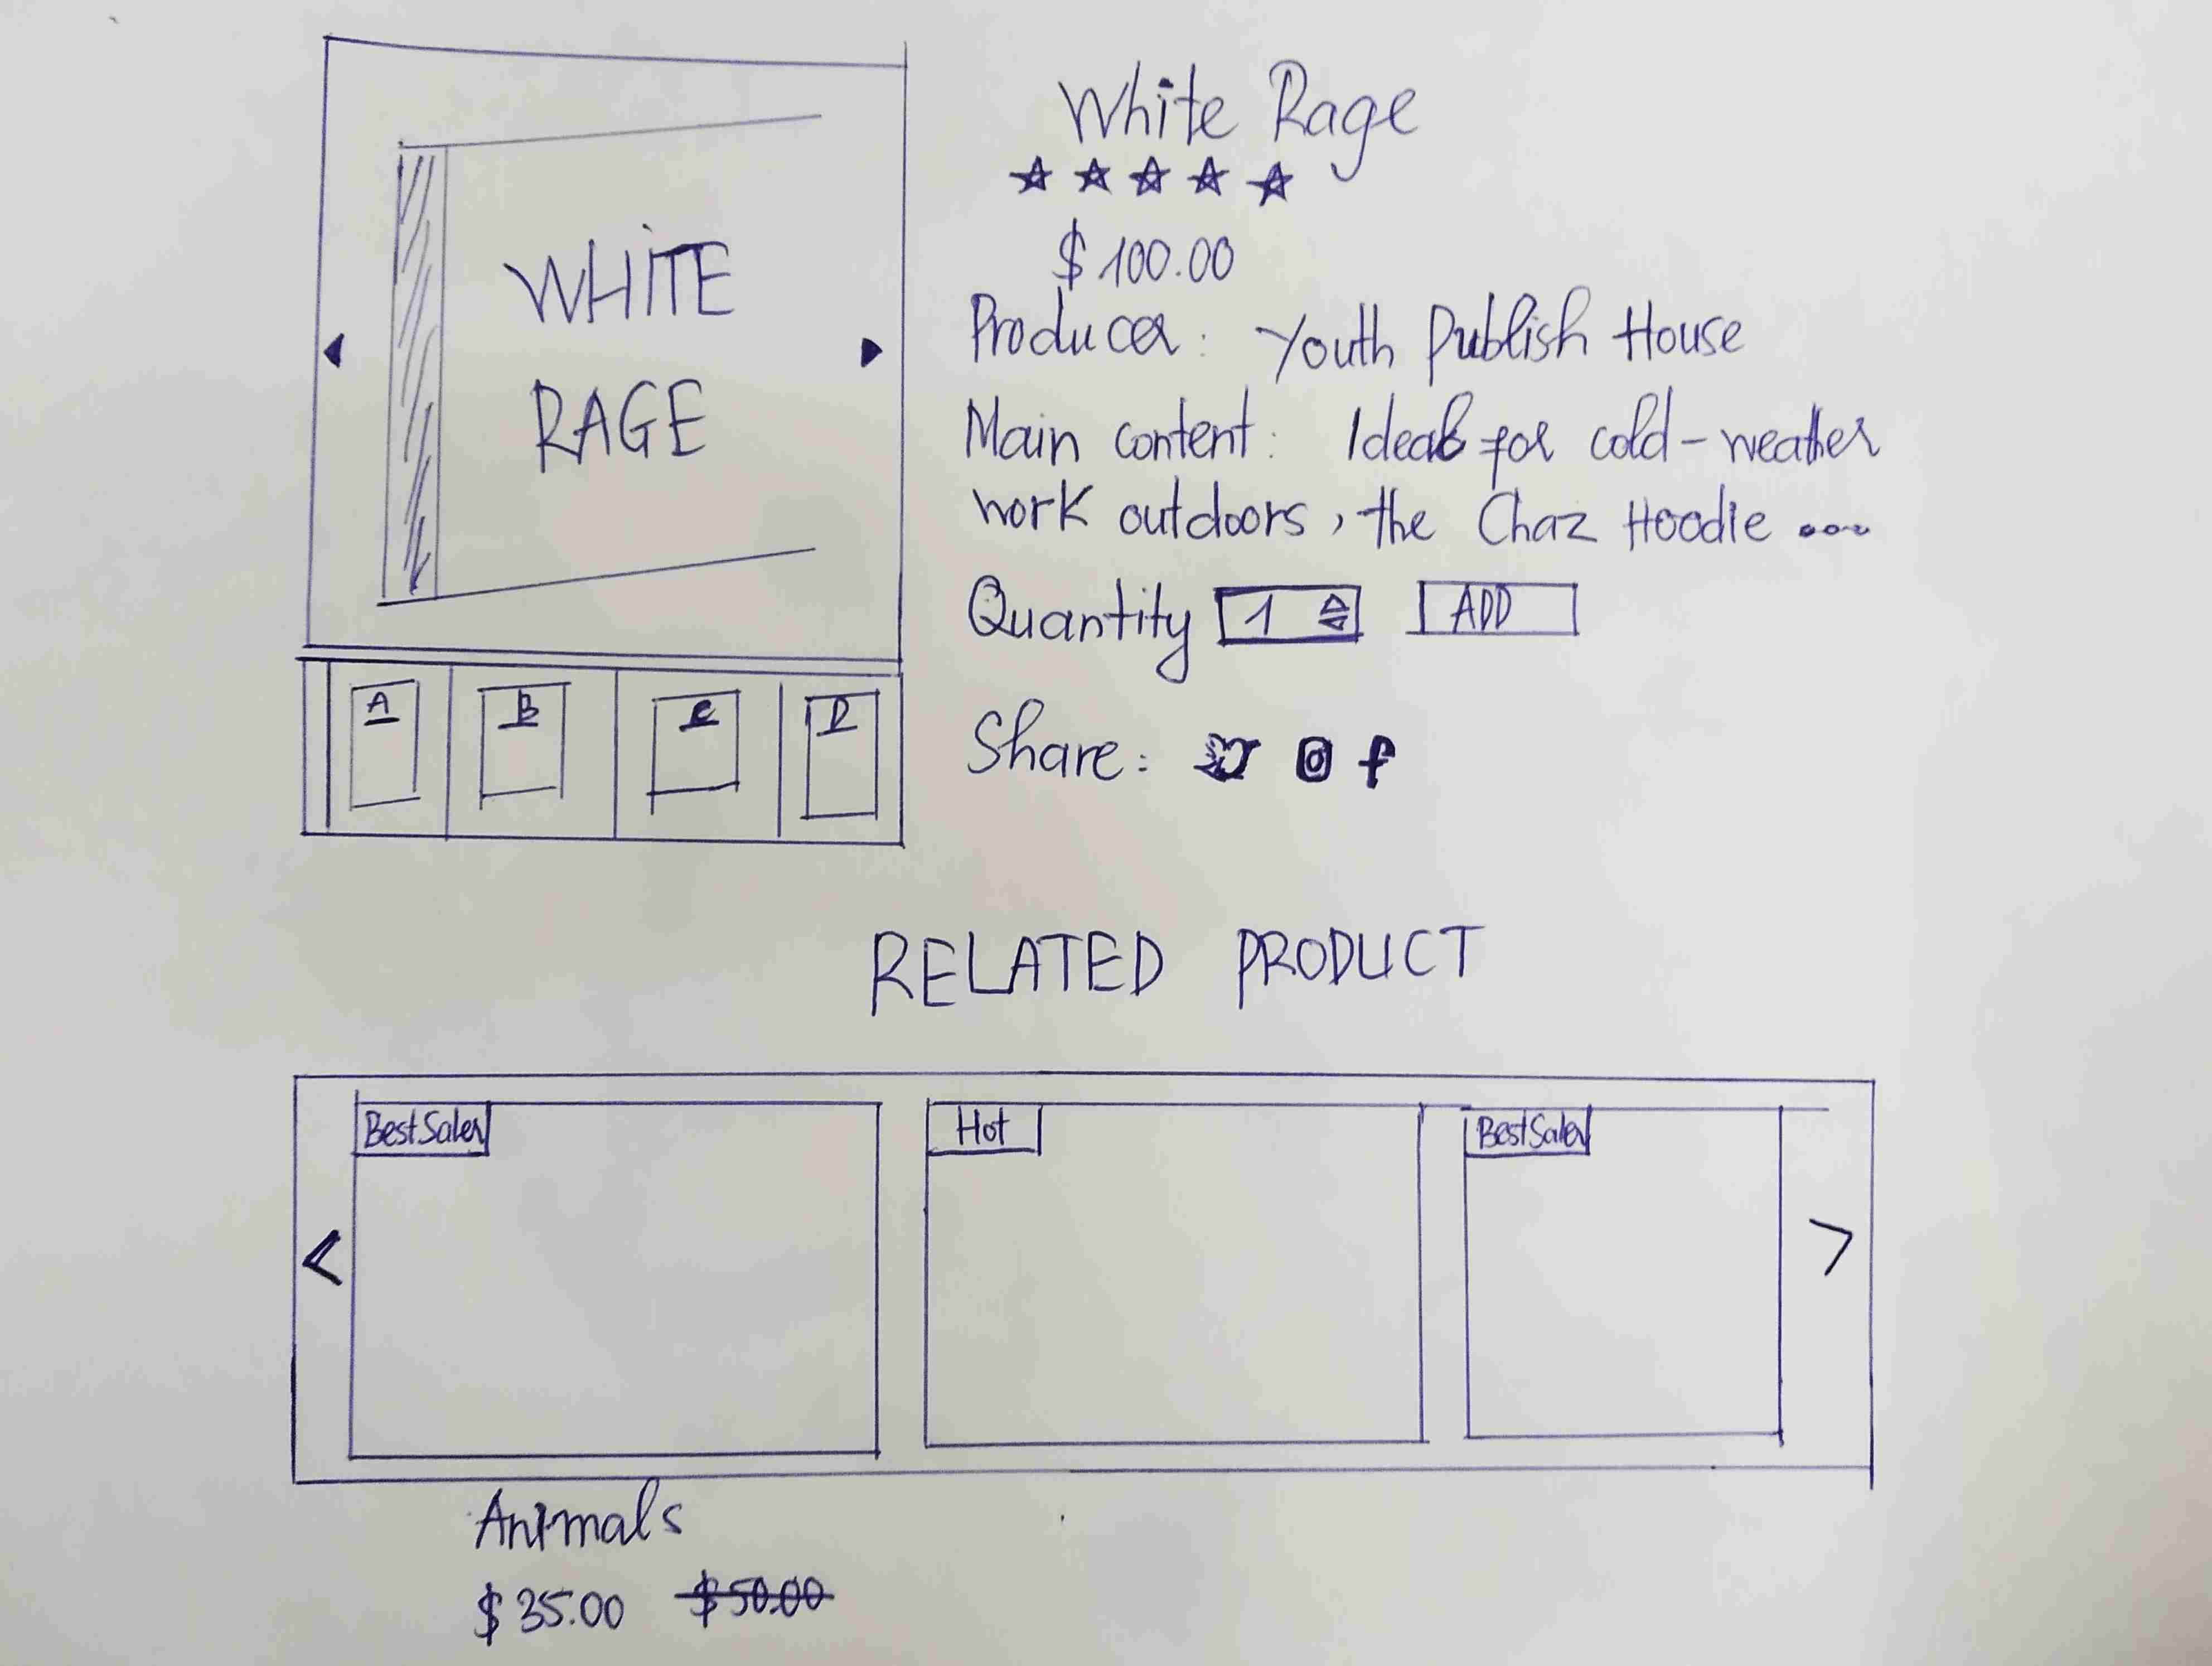 WHITE
RAGE
A B C D
White Rage
$100.00
Producer: Youth Publish House
Main content: Ideal for cold-weather
work outdoors, the Chaz Hoodie ...
Quantity 1 ADD
Share:
RELATED PRODUCT
Best Saler Hot Best Saler
< >
Animals
$35.00 $50.00